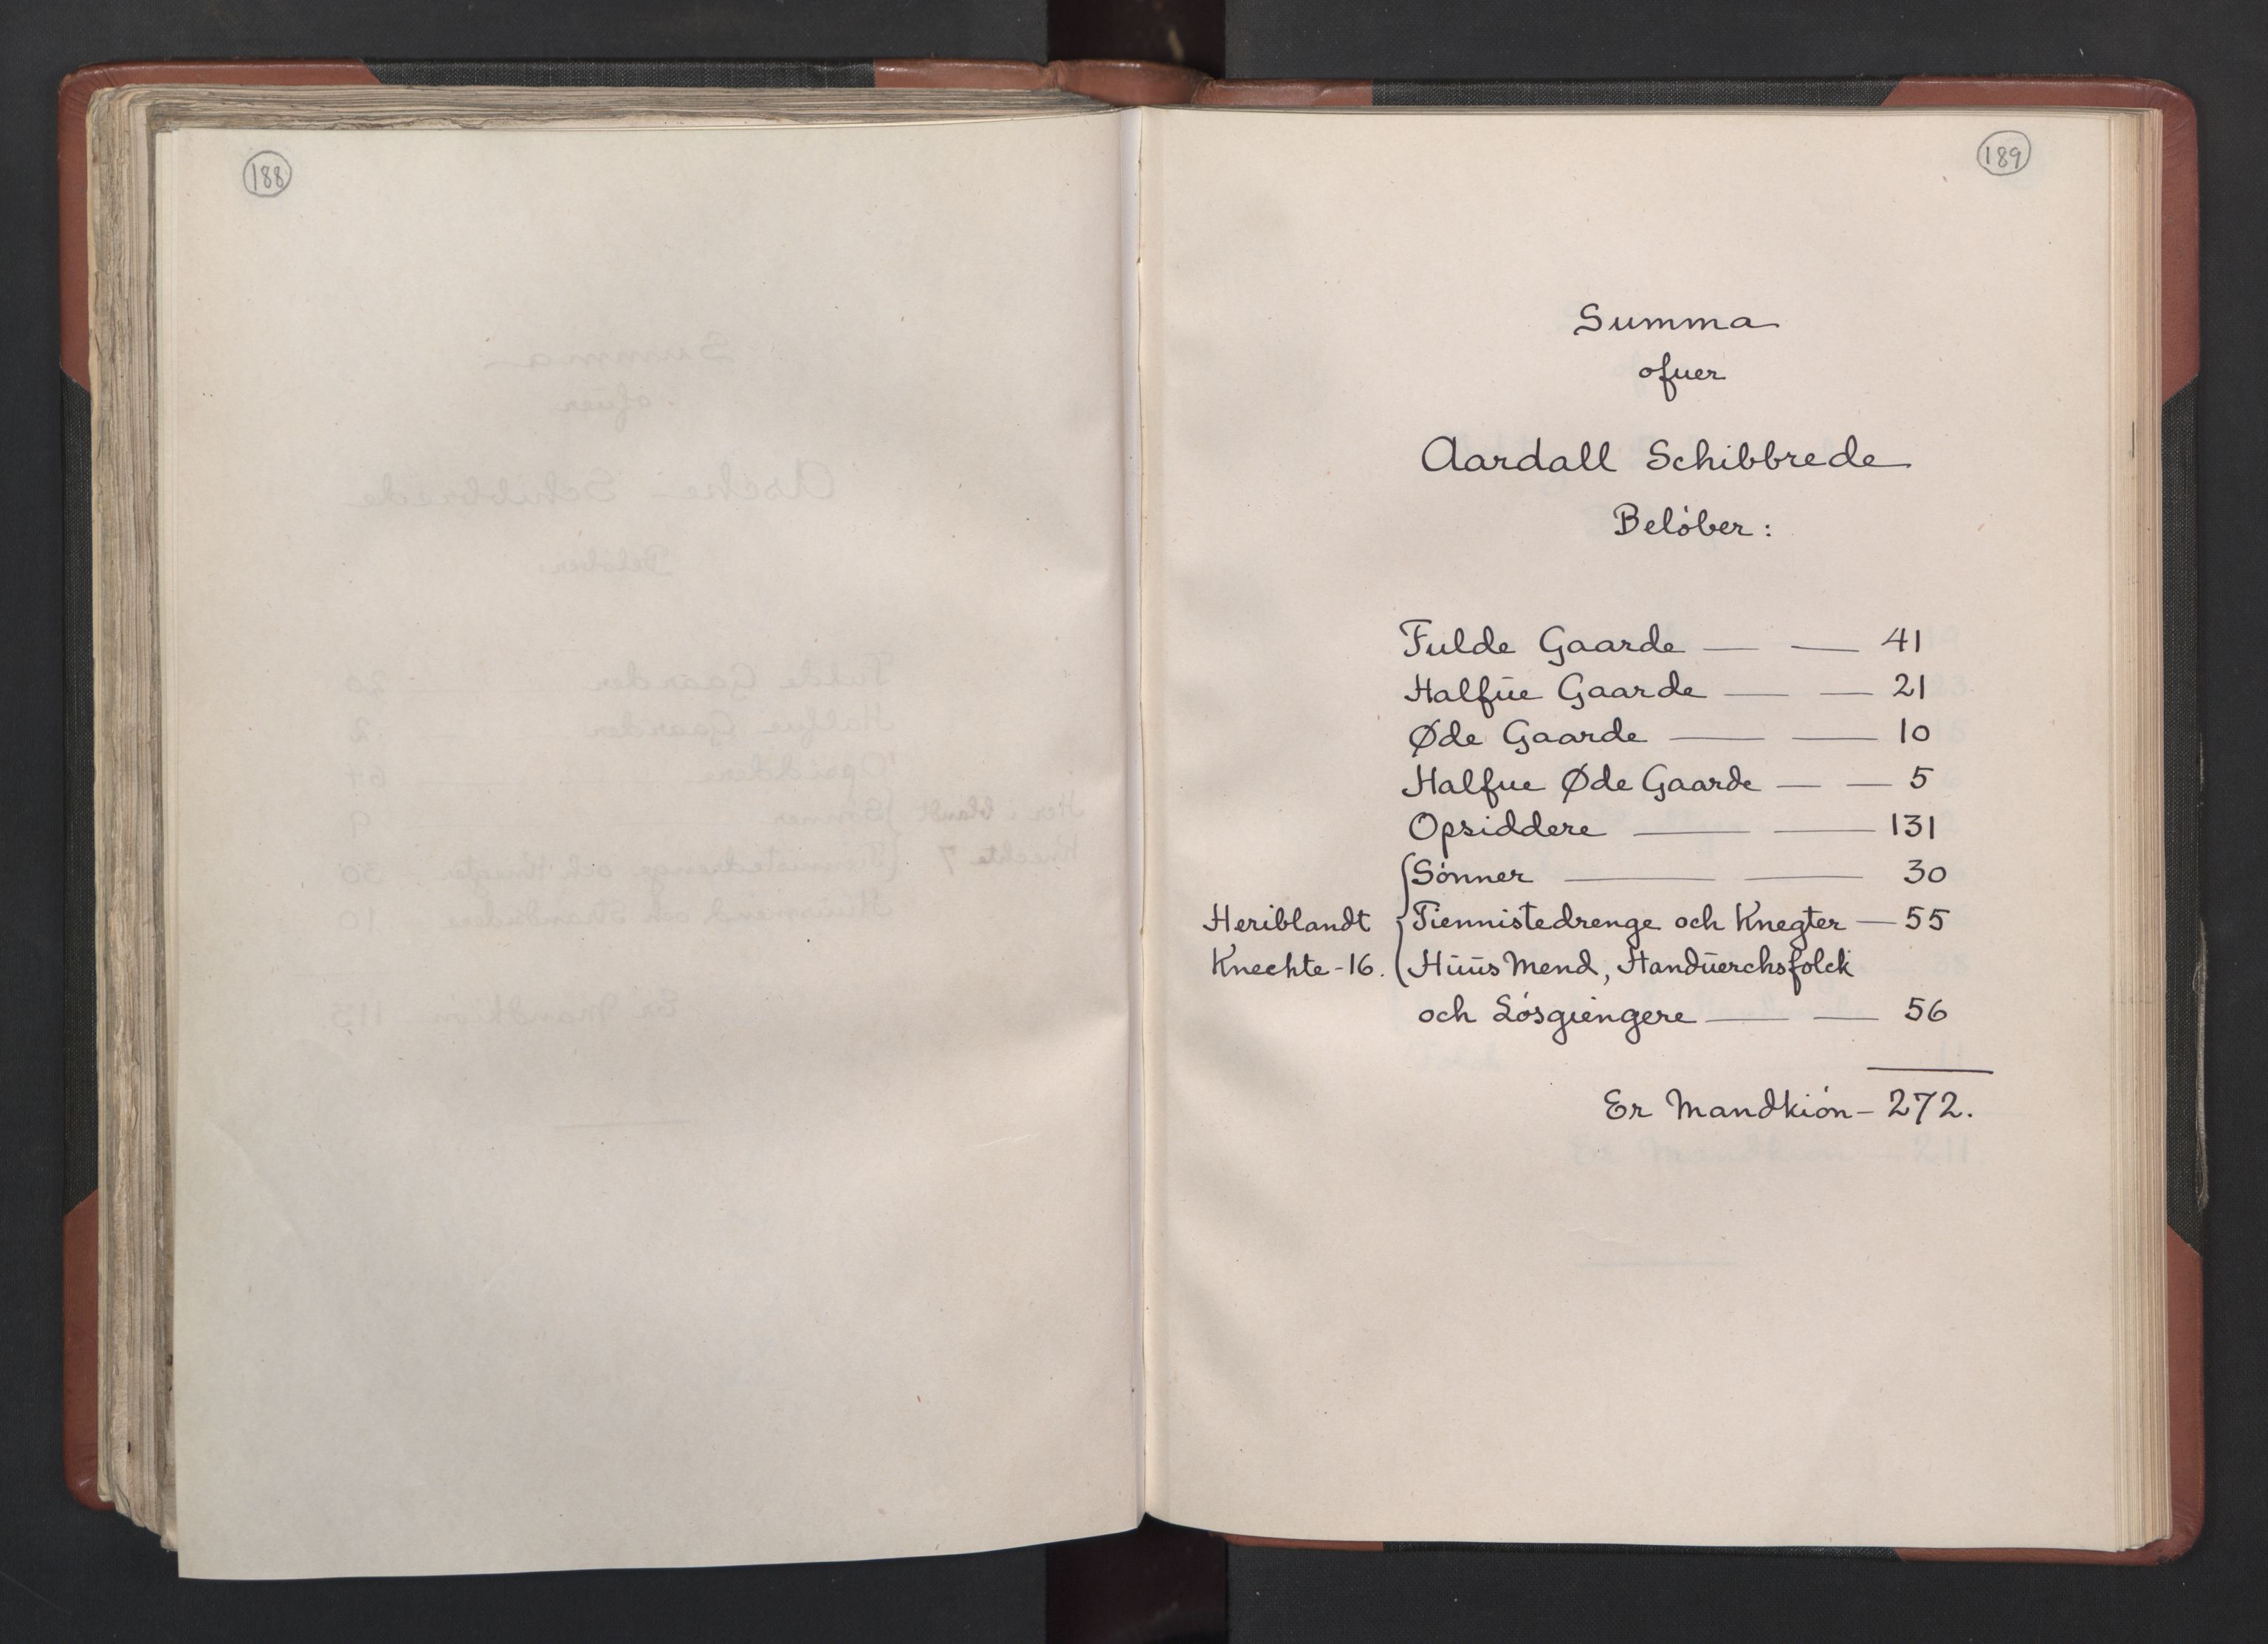 188
189
Summa
ofuer
Aardall Schibbrede
Belóber:
Fulde Gaarde — — 41
Halfŭe Gaarde — — 21
Øde Gaarde — — 10
Halfue Øde Gaarde — — 5
Opsiddere — — 131
Sónner — — 30
Heriblandt Tiennistedrenge och Knegter — 55
Knechte - 16. Hŭŭs Mend, Handŭerchsfolck
och Lósgiengere — — 56
Er Mandkión — 272.